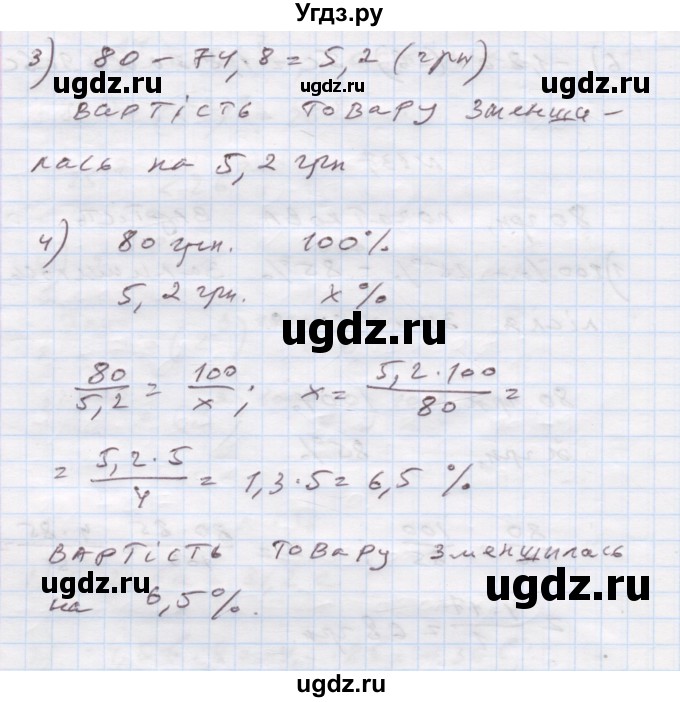 Угдз.ру
3) 80 - 74,8 = 5,2 (грн)
ugdz.ru ugdz.ru ugdz.ru
вартість товару зменши-
лась на 5,2 грн
4) 80 грн. 100%
5,2 грн. x%
ugdz.ru
80/5,2 = 100/x; x = 5,2·100/80 =
= 5,2·5/4 = 1,3·5 = 6,5 %
вартість товару зменшилась
ugdz.ru ugdz.ru ugdz.ru
на 6,5%.
ugdz.ru